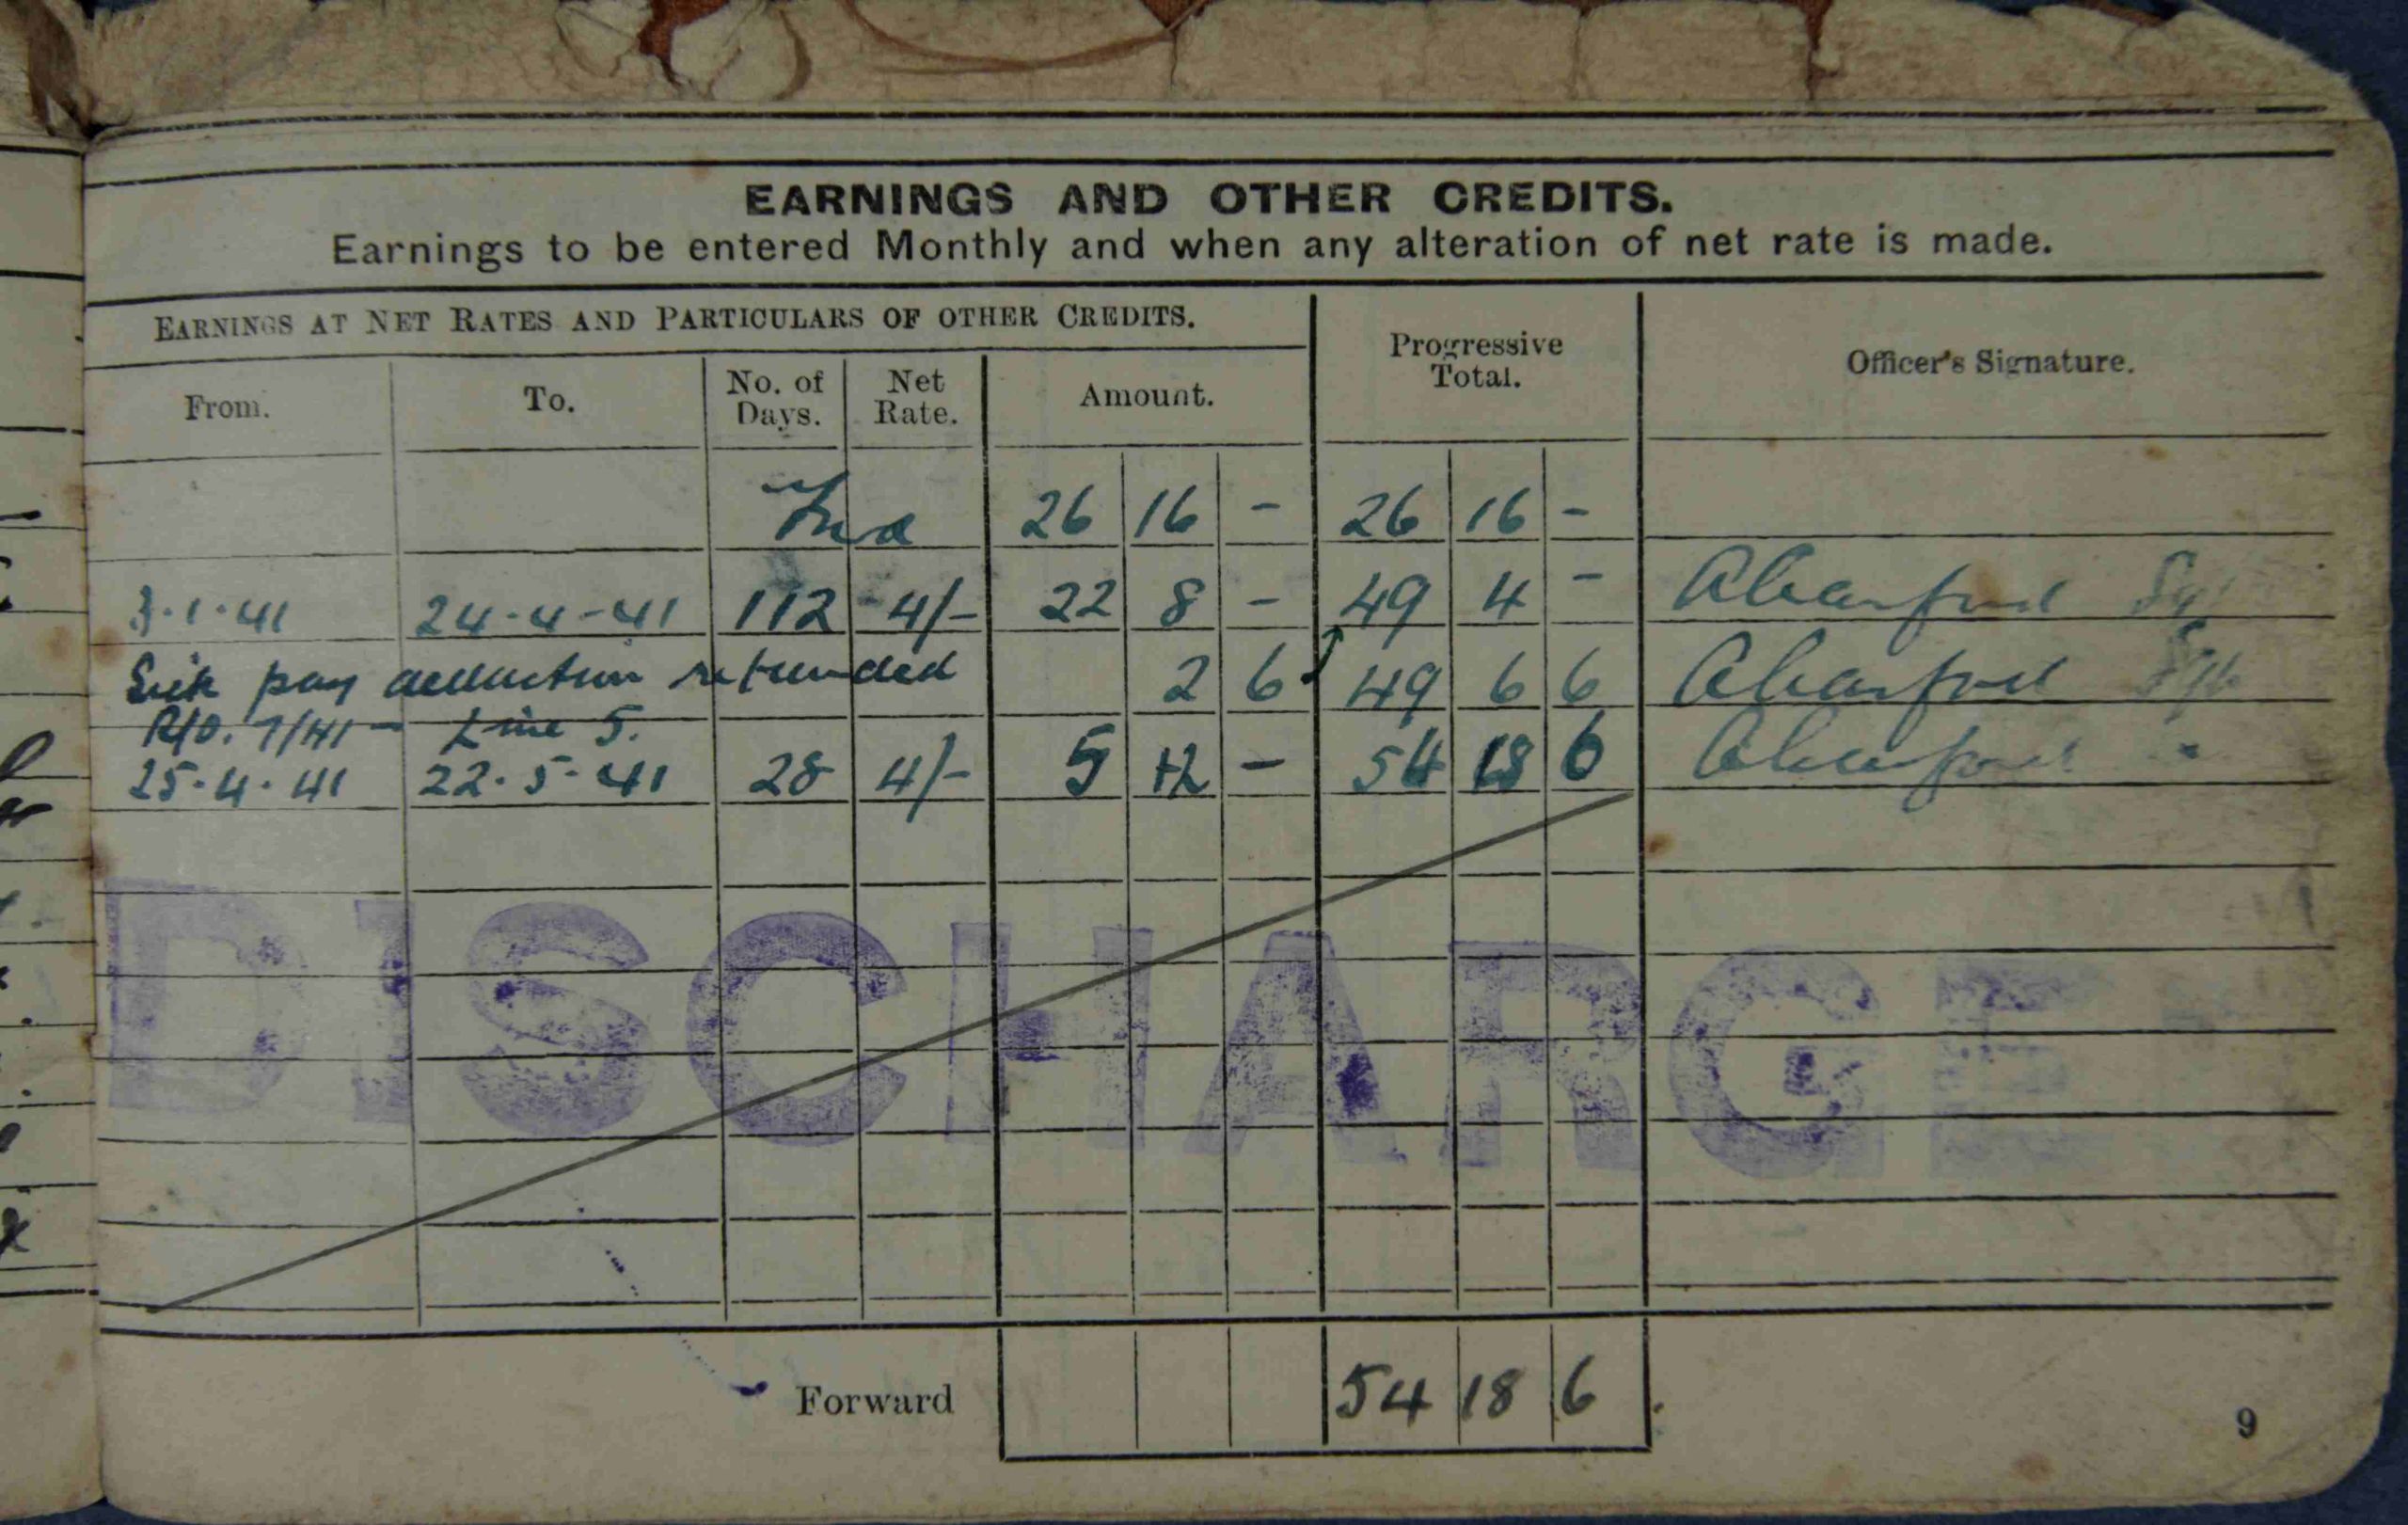 EARNINGS AND OTHER CREDITS.
Earnings to be entered Monthly and when any alteration of net rate is made.
EARNINGS AT NET RATES AND PARTICULARS OF OTHER CREDITS.
Progressive Total.
Officer's Signature.
From. To. No. of Days. Net Rate. Amount.
26 16 - 26 16 -
3.1.41 24-4-41 112 4/- 22 8 - 49 4 -
Sick pay deduction refunded 2 6 49 6 6
R/O. 7/41 - Line 5.
25.4.41 22.5.41 28 4/- 5 12 - 54 18 6
DISCHARGE
Forward 54 18 6
9